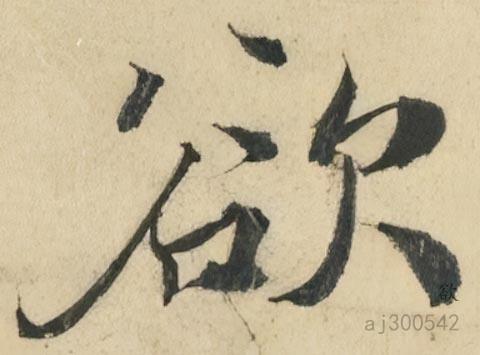 欲
欲
aj300542